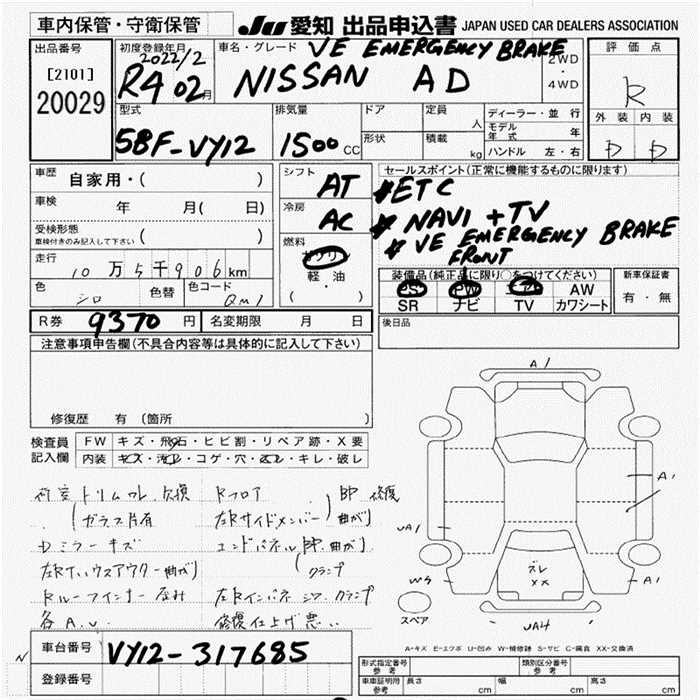 車内保管・守衛保管 JU 愛知 出品申込書 JAPAN USED CAR DEALERS ASSOCIATION
出品番号 初度登録年月 車名・グレード VE EMERGENCY BRAKE 評価点
[2101] 2022/2 2WD
20029 R4 02月 NISSAN AD ・ R
4WD
型式 排気量 ドア 定員 人 ディーラー・並行 外装 内装
5BF-VY12 1500cc 形状 積載 kg モデル年式 年 D D
ハンドル 左・右
車歴 自家用・( ) シフト AT セールスポイント(正常に機能するものに限ります)
車検 年 月( 日) 冷房 AC #ETC
受検形態 ( ) # NAVI + TV
車検付きのみ記入して下さい 燃料 # VE EMERGENCY BRAKE
走行 10万5千906km ガソリン FRONT
色 シロ 色替 色コード QM1 軽・油 ( ・ )
装備品(純正品に限り○をつけてください) 新車保証書
PS PW エアB AW 有・無
SR ナビ TV カワシート
R券 9370円 名変期限 月 日 後日品
注意事項申告欄(不具合内容等は具体的に記入して下さい)
修復歴 有 (箇所
検査員 FW キズ・飛石・ヒビ割・リペア跡・X要
記入欄 内装 キズ・汚れ・コゲ・穴・ズレ・キレ・破レ
荷室トリムワレ欠換 Rフロア BP修復
(ガラス片有 左Rサイドメンバー 曲がり
Dミラーキズ エンドパネルBP曲がり
左Rタイハウスアウター曲がり (クランプ
Rルーフインナー歪み 左Rインパネ シワ クランプ
各A.U 修復仕上げ悪い
A1
A1
UA1
W3 ズレ A1
XX
スペア UA4
A-キズ E-エクボ U-凹み W-補修跡 S-サビ C-腐食 XX-交換済
車台番号 VY12-317685
登録番号
形式指定番号 参考 類別区分番号 参考
車庫証明用 参考 長さ cm 幅 cm 高さ cm